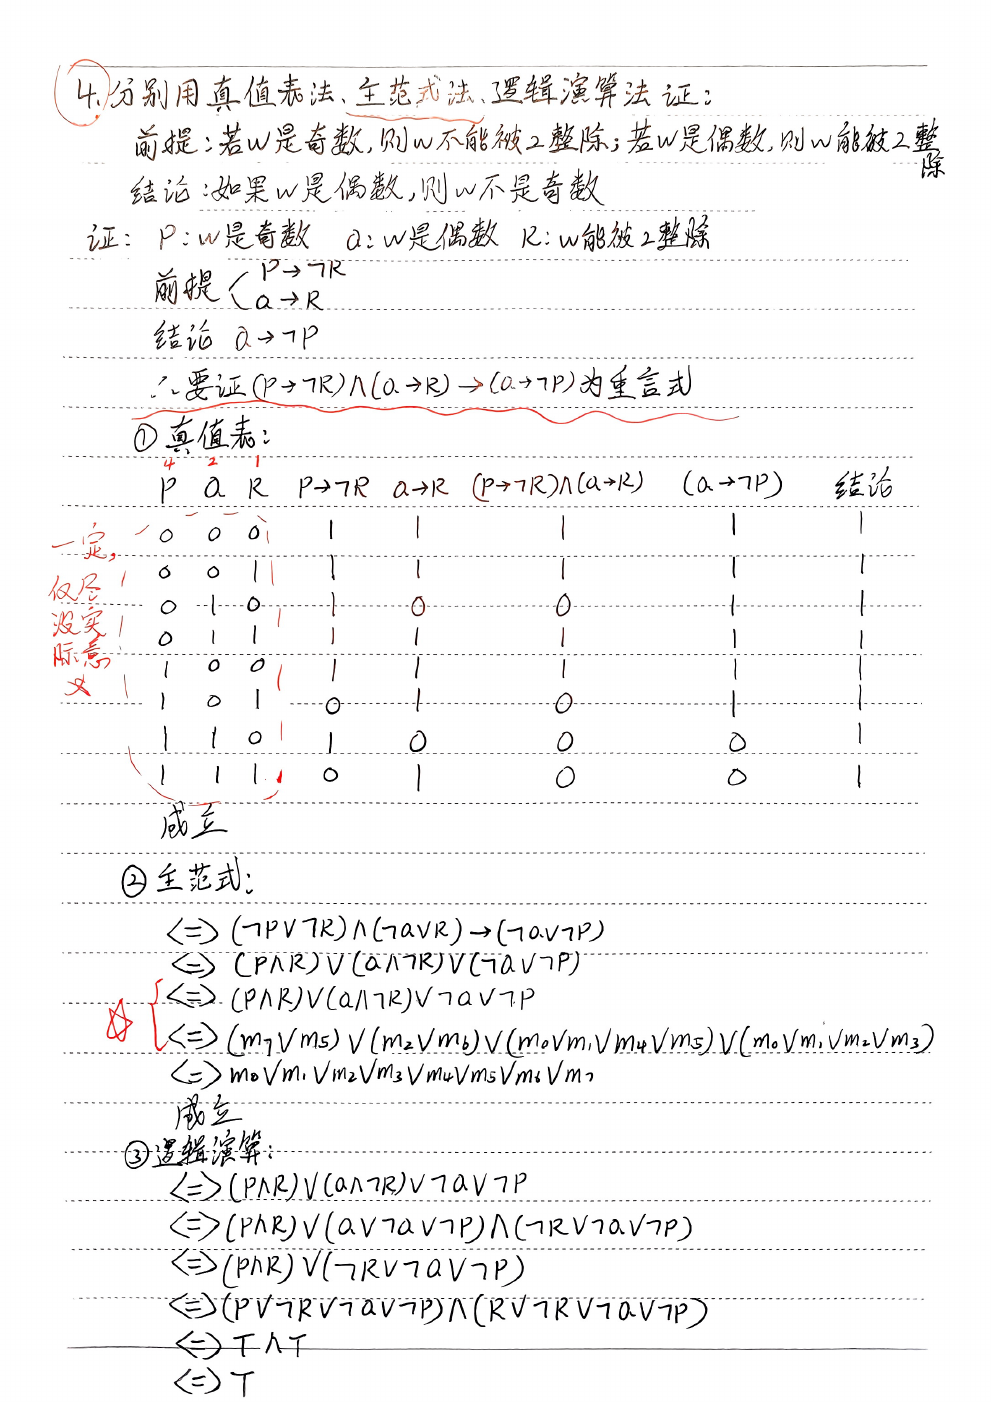 4. 分别用真值表法、主范式法、逻辑演算法证:
前提:若w是奇数,则w不能被2整除;若w是偶数,则w能被2整除
结论:如果w是偶数,则w不是奇数
证: P:w是奇数 Q:w是偶数 R:w能被2整除
前提 P→¬R
Q→R
结论 Q→¬P
∴要证(P→¬R)∧(Q→R)→(Q→¬P)为重言式
①真值表:
4 2 1
P Q R P→¬R Q→R (P→¬R)∧(Q→R) (Q→¬P) 结论
0 0 0 1 1 1 1 1
0 0 1 1 1 1 1 1
0 1 0 1 0 0 1 1
0 1 1 1 1 1 1 1
1 0 0 1 1 1 1 1
1 0 1 0 1 0 1 1
1 1 0 1 0 0 0 1
1 1 1 0 1 0 0 1
一定,
仅尽
没实
际意
义
成立
②主范式:
<=> (¬P∨¬R)∧(¬Q∨R)→(¬Q∨¬P)
<=> (P∧R)∨(Q∧¬R)∨(¬Q∨¬P)
<=> (P∧R)∨(Q∧¬R)∨¬Q∨¬P
<=> (m7∨m5)∨(m2∨m6)∨(m0∨m1∨m4∨m5)∨(m0∨m1∨m2∨m3)
<=> m0∨m1∨m2∨m3∨m4∨m5∨m6∨m7
成立
③逻辑演算:
<=> (P∧R)∨(Q∧¬R)∨¬Q∨¬P
<=> (P∧R)∨(Q∨¬Q∨¬P)∧(¬R∨¬Q∨¬P)
<=> (P∧R)∨(¬R∨¬Q∨¬P)
<=> (P∨¬R∨¬Q∨¬P)∧(R∨¬R∨¬Q∨¬P)
<=> T∧T
<=> T